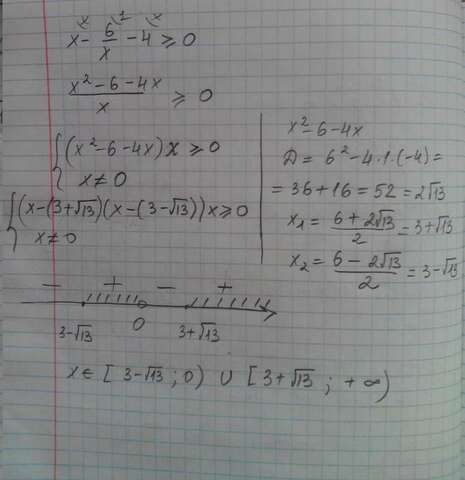 x - 6/x - 4 ⩾ 0
(x² - 6 - 4x)/x ⩾ 0
{ (x² - 6 - 4x) x ⩾ 0
x ≠ 0
{ (x - (3 + √13)(x - (3 - √13)) x ⩾ 0
x ≠ 0
x² - 6 - 4x
D = 6² - 4·1·(-4) =
= 36 + 16 = 52 = 2√13
x₁ = (6 + 2√13)/2 = 3 + √13
x₂ = (6 - 2√13)/2 = 3 - √13
- + - +
3-√13 0 3+√13
x ∈ [ 3-√13 ; 0) ∪ [ 3+√13 ; +∞)